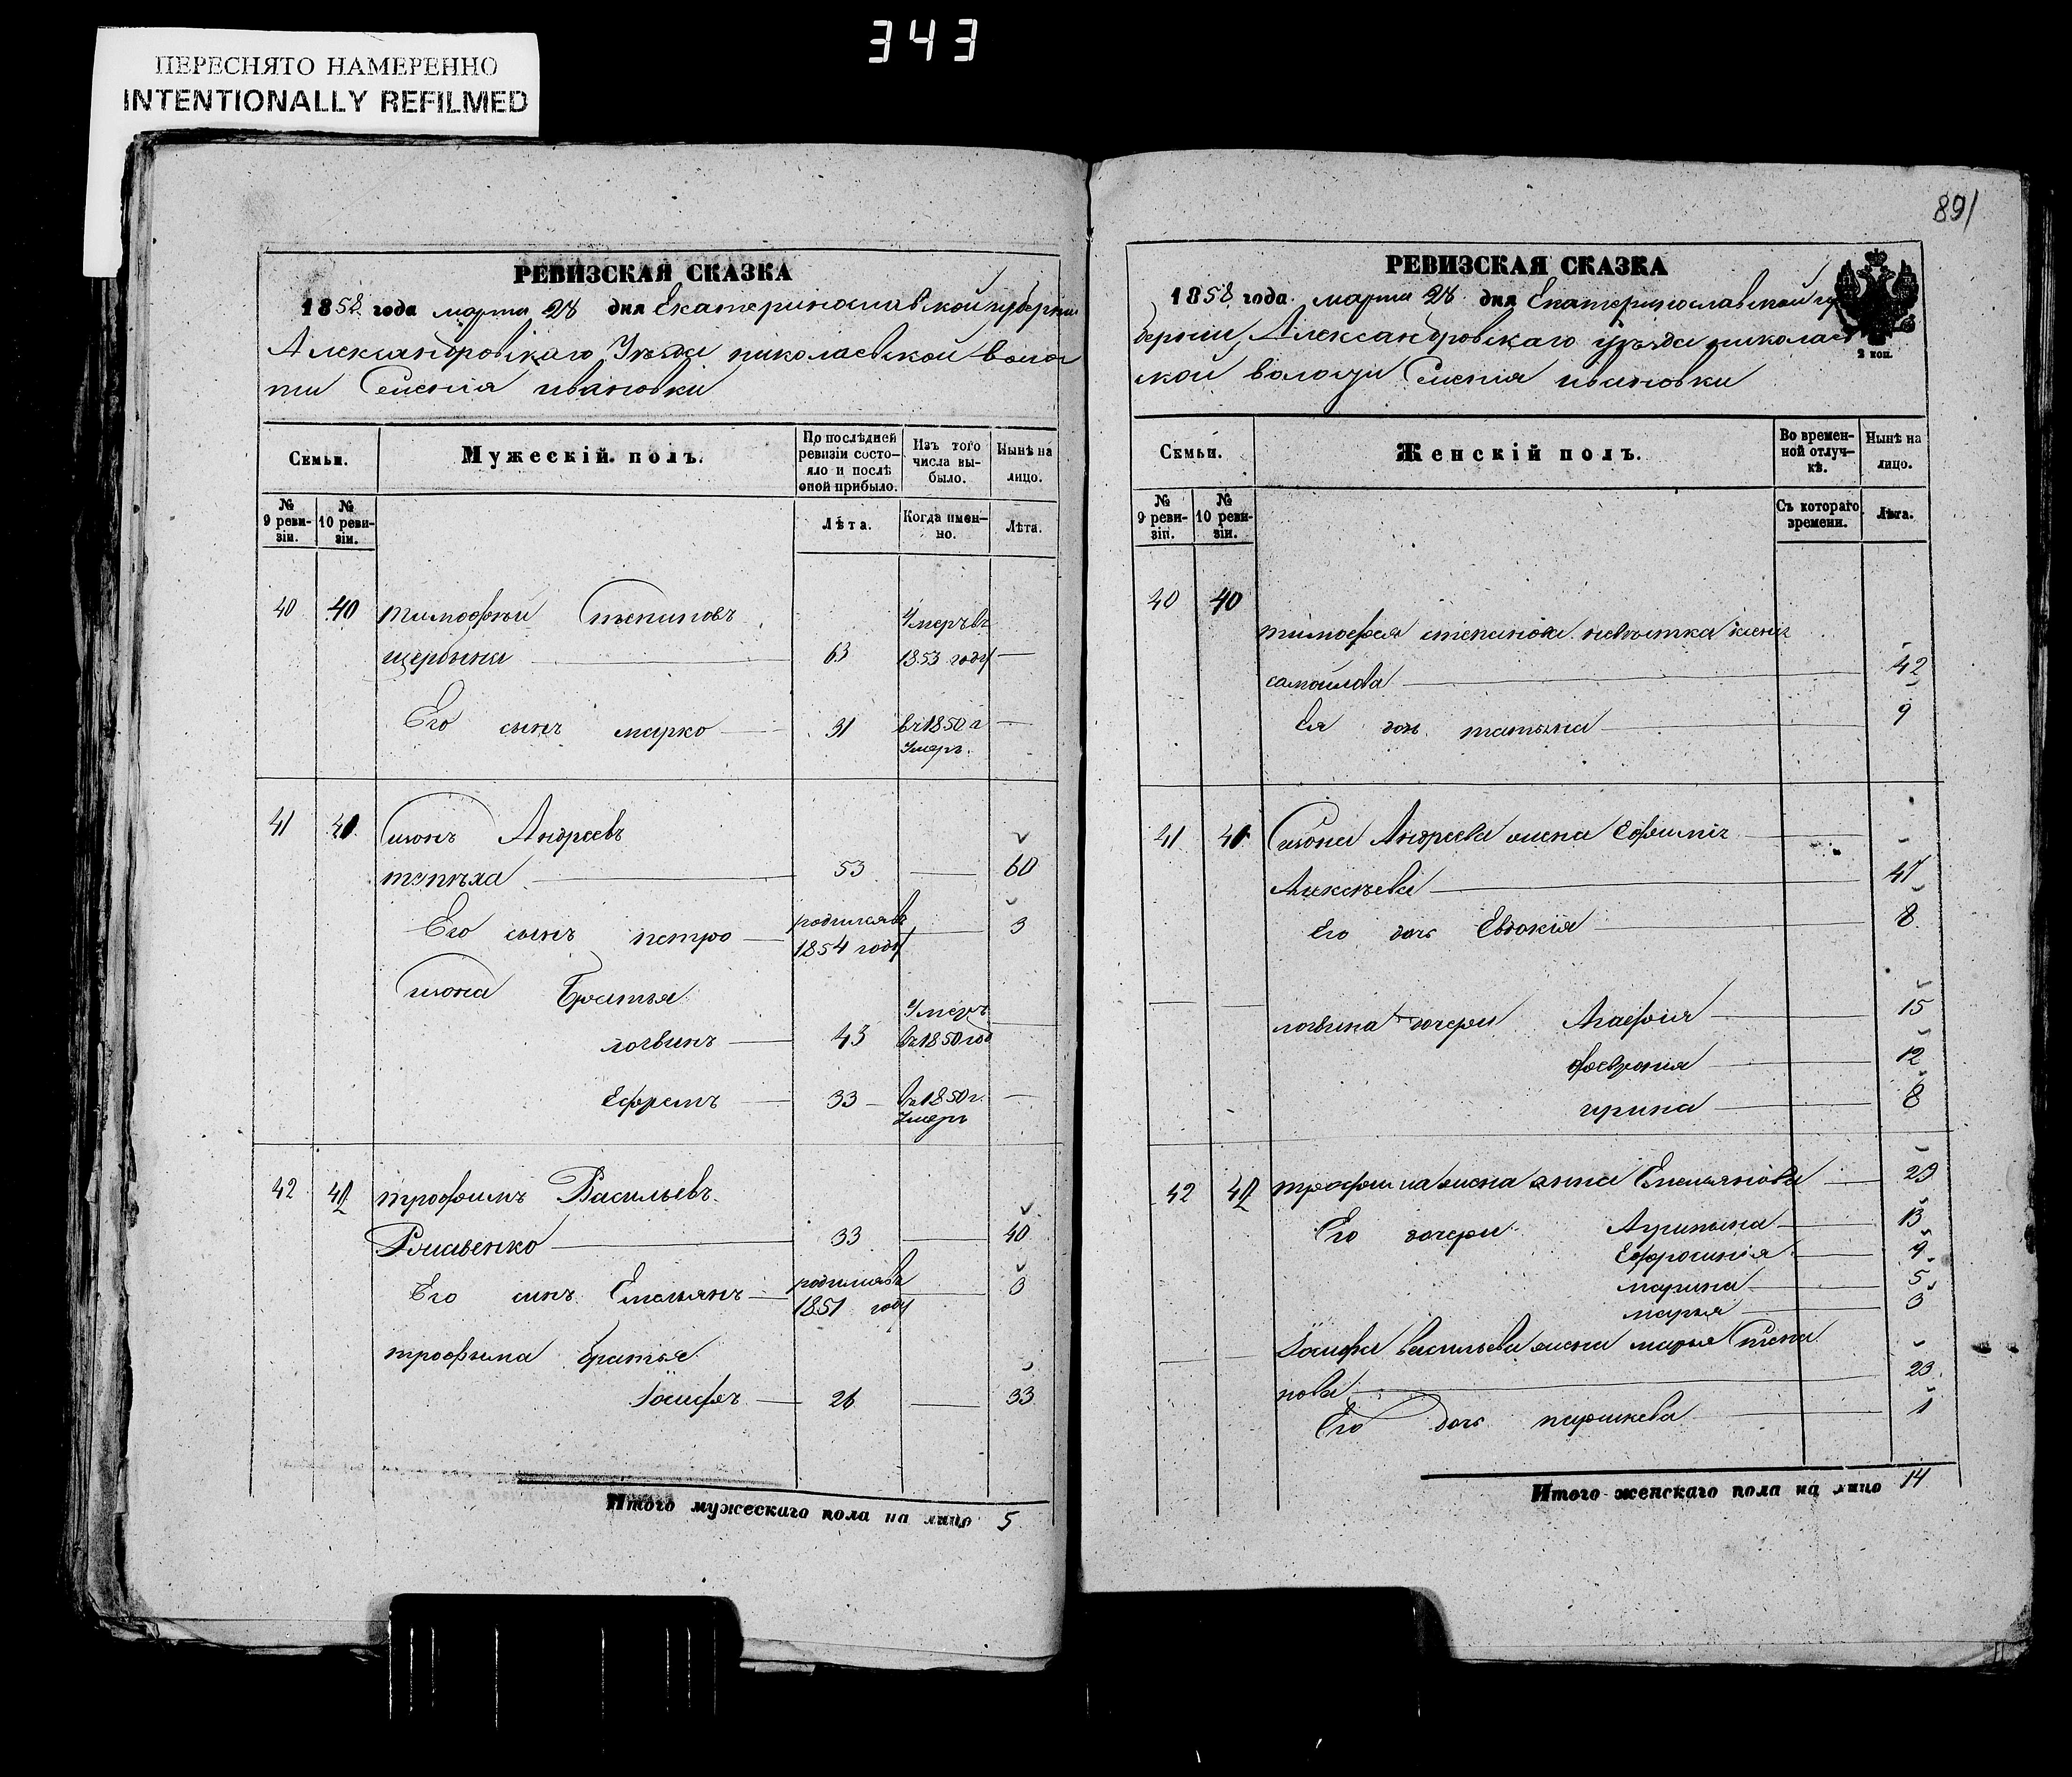 343
ПЕРЕСНЯТО НАМЕРЕННО
INTENTIONALLY REFILMED
РЕВИЗСКАЯ СКАЗКА
1858 года марта 28 дня Екатеринославской губернии
Александровскаго Уезда николаевской волос
ти Селенія ивановки
Семьи.
Мужескій полъ.
По послѣдней ревизіи состояло и послѣ оной прибыло.
Изъ того числа выбыло.
Нынѣ на лицо.
№ 9 ревизіи.
№ 10 ревизіи.
Лѣта.
Когда именно.
Лѣта.
40 40 тимофѣй Степановъ Умеръ въ
щербина 63 1853 году
Его сынъ марко 31 въ 1850 г
Умеръ.
41 41 Андреевъ
53 60
Его сынъ петро родился въ 3
1854 году
Братья
Умеръ
логвинъ 43 въ 1850 год
Ефремъ 33 въ 1850 г.
Умеръ
42 42 трофимъ Васильевъ
33 40
Его сынъ Емельянъ родился въ 3
1851 году
трофима братья
Іосифъ 26 33
Итого мужескаго пола на лицо 5
891
РЕВИЗСКАЯ СКАЗКА
1858 года марта 28 дня Екатеринославской гу
берніи, Александровскаго уѣзда николаев
2 коп.
ской волости Селенія ивановки
Семьи.
Женскій полъ.
Во временной отлучкѣ.
Нынѣ на лицо.
№ 9 ревизіи.
№ 10 ревизіи.
Съ котораго времени.
Лѣта.
40 40
тимофея степанова невѣстка
самойлова 42
Ея дочь татьяна 9
41 41 Андреева жена
Алексѣева 47
Его дочь Евдокія 8
логвина дочери Агафія 15
февронія 12
ирина 8
42 42 трофима жена анна Емельянова 29
Его дочери Агрипина 13
Ефросинія 9
марина 5
марья 3
Іосифа васильева жена марья Степа
нова 23
Его дочь парасkева 1
Итого женскаго пола на лицо 14